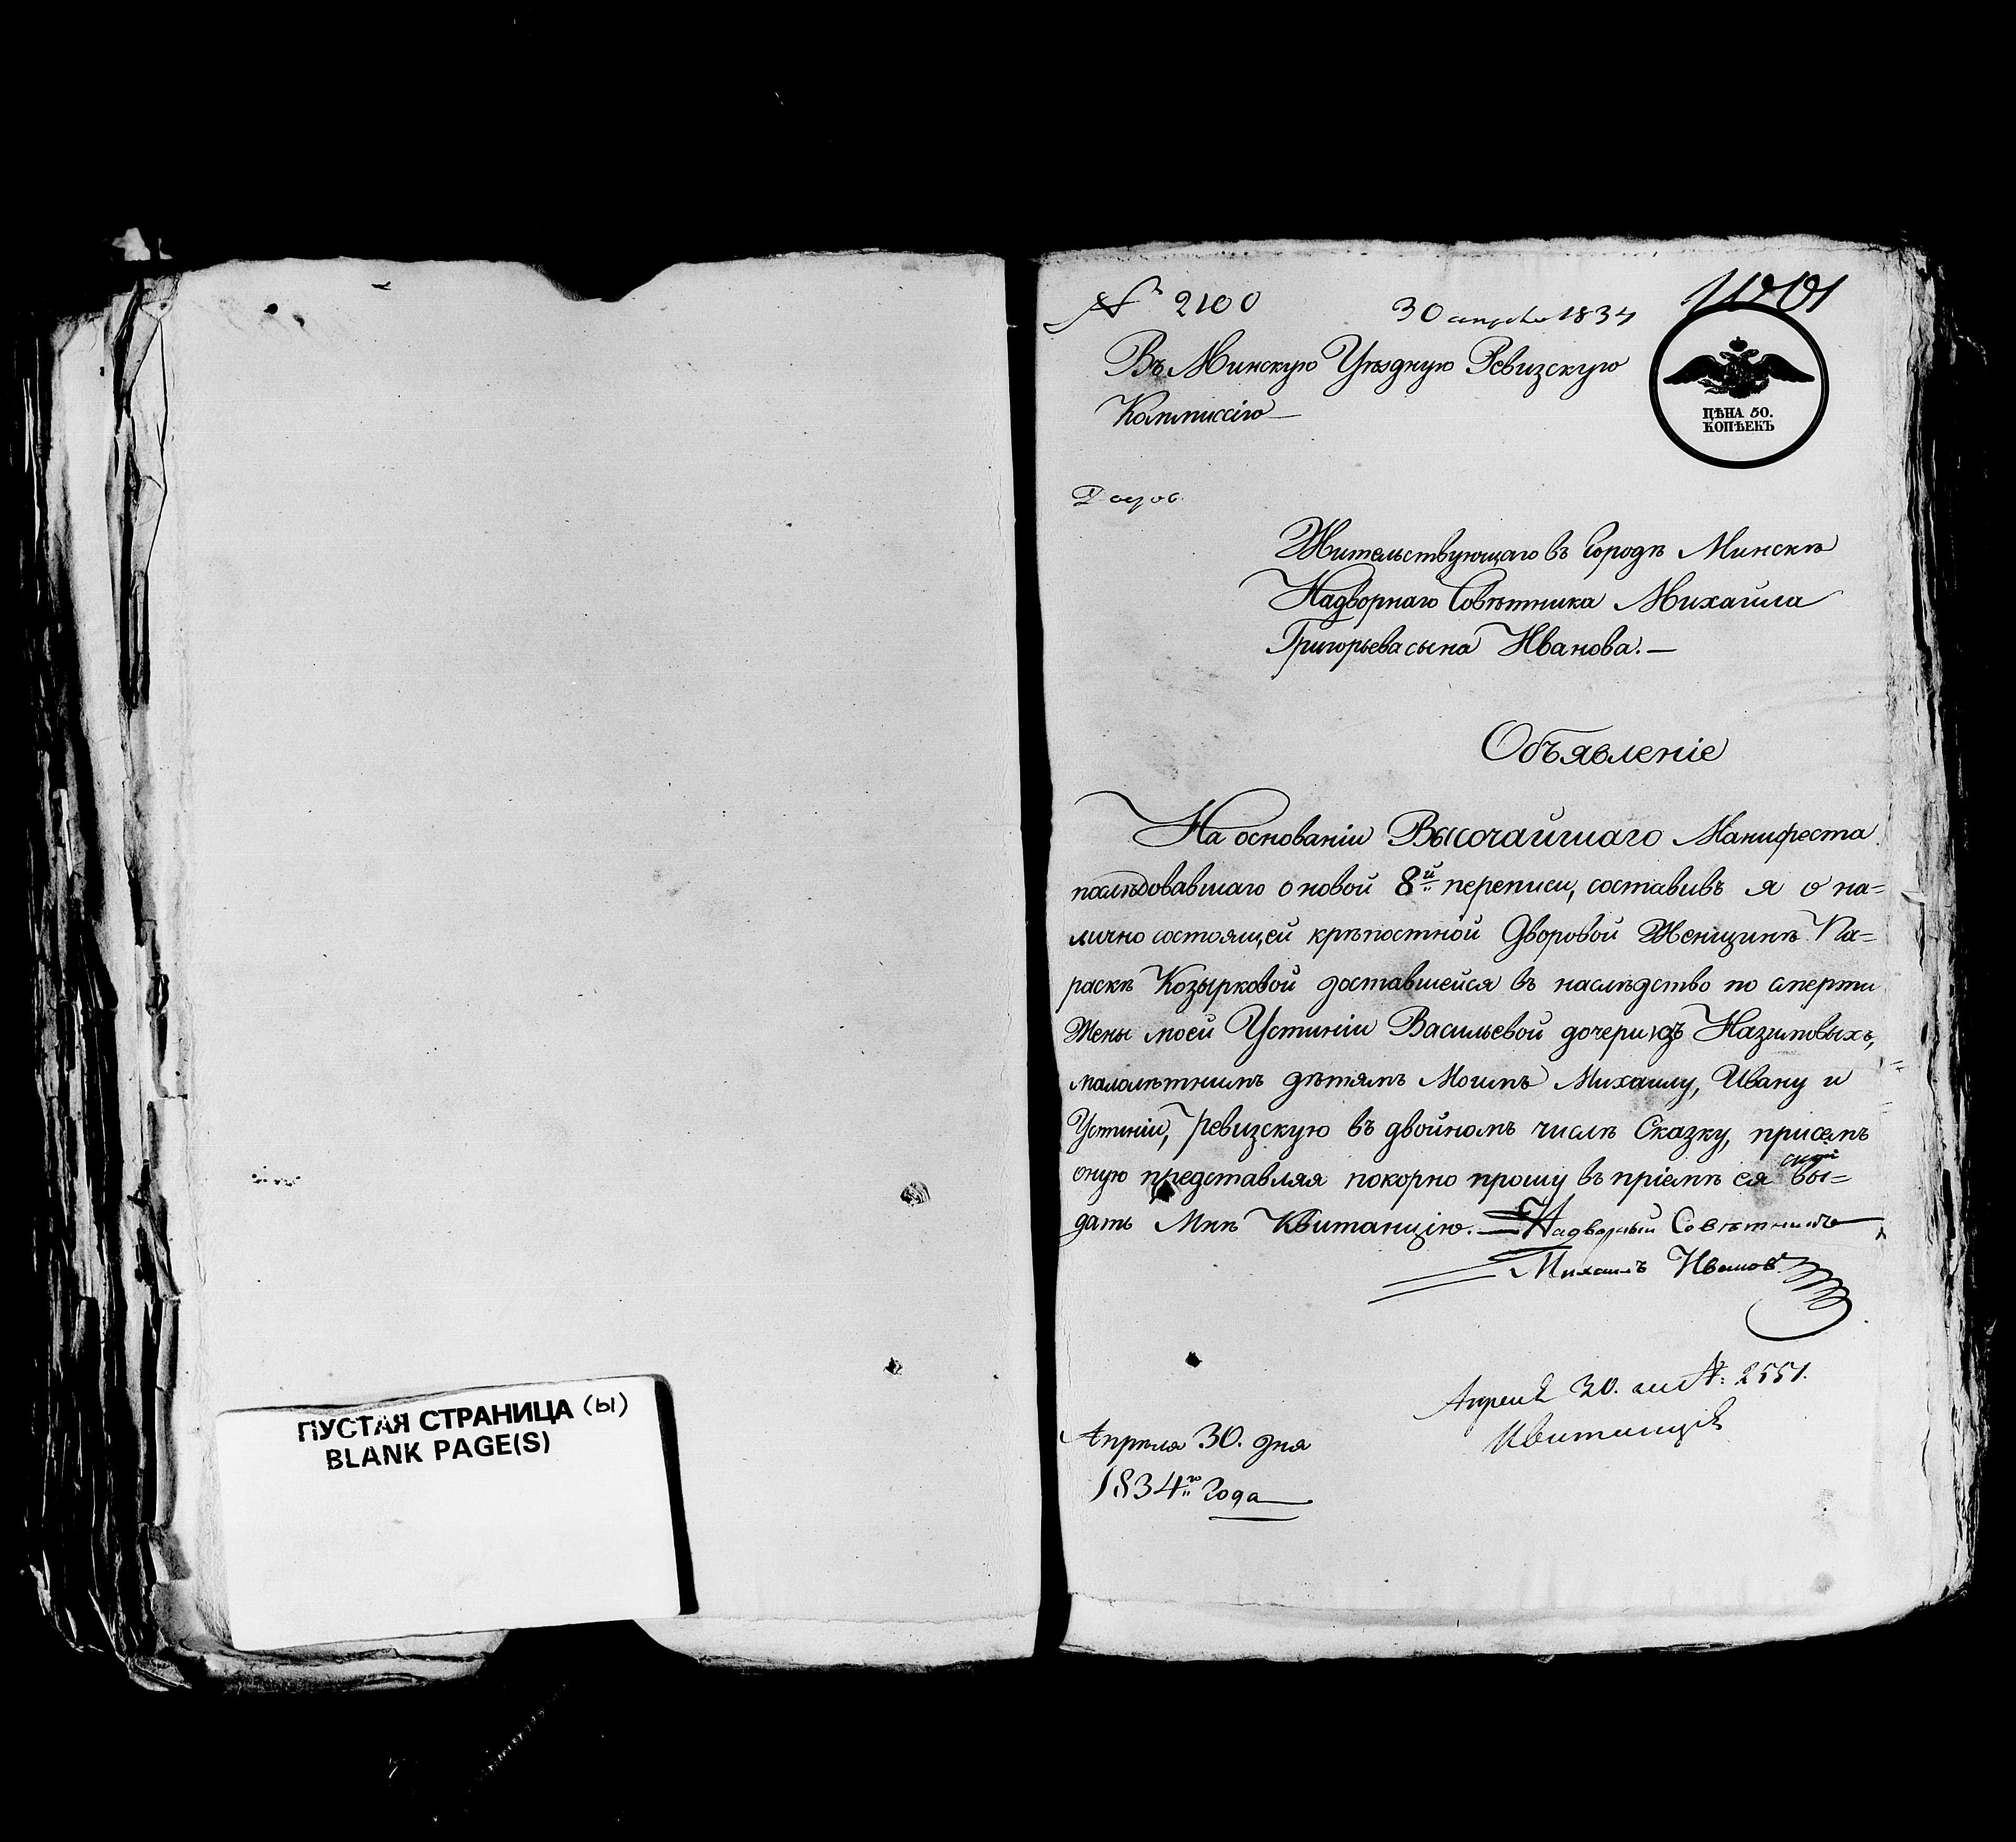 ПУСТАЯ СТРАНИЦА (Ы)
BLANK PAGE(S)
№ 2100
30 апреля 1834
Въ Минскую Уѣздную Ревизскую
Коммиссію
ЦѢНА 50.
КОПѢЕКЪ
Жительствующаго въ Городѣ Минскѣ
Надворнаго Совѣтника Михайла
Григорьева сына Иванова.—
Объявленіе
На основаніи Высочайшаго Манифеста
послѣдовавшаго о новой 8й переписи, составивъ я о на=
лично состоящей крѣпостной Дворовой Женщинѣ Па=
раскѣ Козырковой доставшейся въ наслѣдство по смерти
Жены моей Устиніи Васильевой дочери изъ Назимовыхъ,
малолѣтнимъ дѣтямъ Моимъ Михаилу, Ивану и
Устиніи, Ревизскую въ двойномъ числѣ Сказку, присемъ
оную представляя покорно прошу въ пріемѣ ея вы=
дать Мнѣ Квитанцію. Надворный Совѣтникъ
Михаилъ Ивановъ
Апреля 30. № 2551.
Квитанція
Апрѣля 30. дня
1834го Года